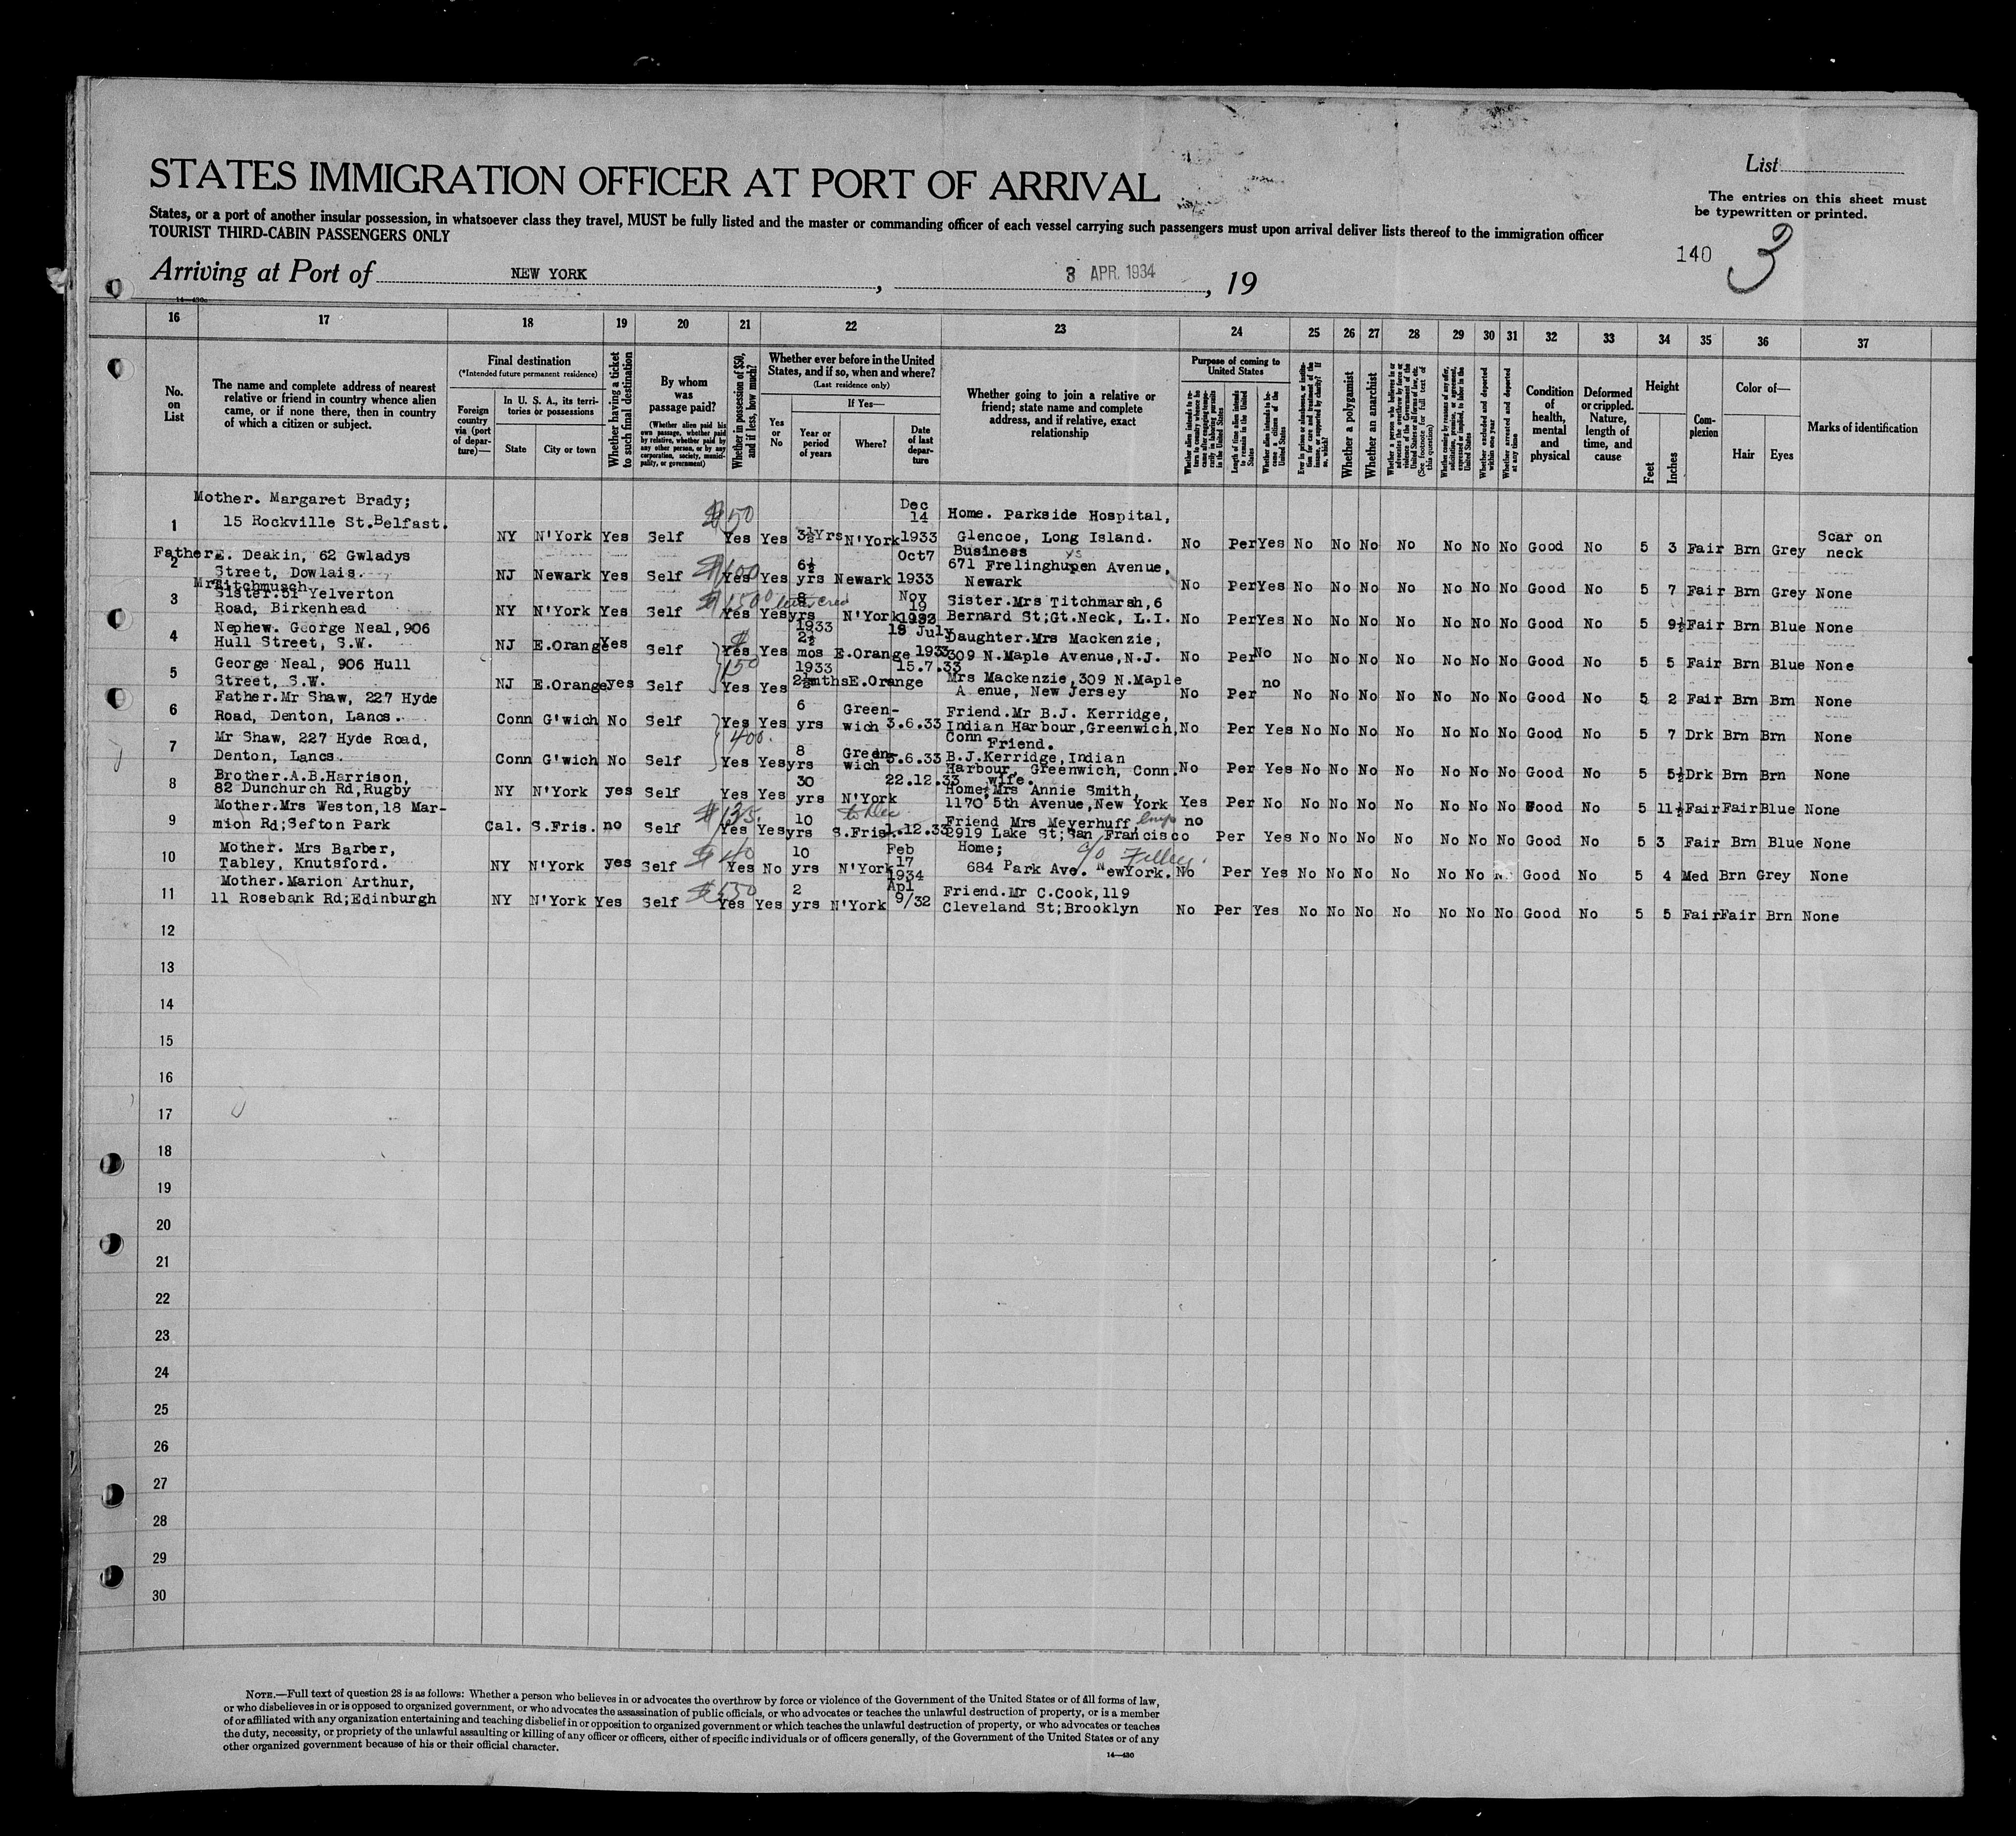 STATES IMMIGRATION OFFICER AT PORT OF ARRIVAL
List
The entries on this sheet must
be typewritten or printed.
States, or a port of another insular possession, in whatsoever class they travel, MUST be fully listed and the master or commanding officer of each vessel carrying such passengers must upon arrival deliver lists thereof to the immigration officer
TOURIST THIRD-CABIN PASSENGERS ONLY
140 3
Arriving at Port of NEW YORK, 3 APR. 1934, 19
16 17 18 19 20 21 22 23 24 25 26 27 28 29 30 31 32 33 34 35 36 37
No. on List
The name and complete address of nearest relative or friend in country whence alien came, or if none there, then in country of which a citizen or subject.
Final destination
(*Intended future permanent residence)
Foreign country via (port of departure)—
In U. S. A., its territories or possessions
State
City or town
Whether having a ticket to such final destination
By whom was passage paid?
(Whether alien paid his own passage, whether paid by relative, whether paid by any other person, or by any corporation, society, municipality, or government)
Whether in possession of $50, and if less, how much?
Whether ever before in the United States, and if so, when and where?
(Last residence only)
Yes or No
If Yes—
Year or period of years
Where?
Date of last departure
Whether going to join a relative or friend; state name and complete address, and if relative, exact relationship
Purpose of coming to United States
Whether alien intends to return to country whence he came after engaging temporarily in laboring pursuits in the United States
Length of time alien intends to remain in the United States
Whether alien intends to become a citizen of the United States
Ever in prison or almshouse, or institution for care and treatment of the insane, or supported by charity? If so, which?
Whether a polygamist
Whether an anarchist
(See footnote for full text of this question)
Whether excluded and deported within one year
Whether arrested and deported at any time
Condition of health, mental and physical
Deformed or crippled. Nature, length of time, and cause
Height
Feet
Inches
Complexion
Color of—
Hair
Eyes
Marks of identification
1 Mother. Margaret Brady; 15 Rockville St.Belfast. NY N'York Yes Self $150 Yes Yes 3½Yrs N'York Dec 14 1933 Home. Parkside Hospital, Glencoe, Long Island. No Per Yes No No No No No No No Good No 5 3 Fair Brn Grey Scar on neck
2 Father E. Deakin, 62 Gwladys Street, Dowlais. NJ Newark Yes Self $100 Yes Yes 6½ yrs Newark Oct7 1933 Business 671 Frelinghupen Avenue, Newark No Per Yes No No No No No No No Good No 5 7 Fair Brn Grey None
3 Sister.51 Yelverton Road, Birkenhead NY N'York Yes Self $1500 Yes Yes 8 yrs N'York Nov 19 Sister.Mrs Titchmarsh,6 Bernard St;Gt.Neck, L.I. No Per Yes No No No No No No No Good No 5 9½ Fair Brn Blue None
4 Nephew. George Neal,906 Hull Street, S.W. NJ E.Orange Yes Self $150 Yes Yes 1933 2½ mos E.Orange 18 July 1933 Daughter.Mrs Mackenzie, 309 N.Maple Avenue,N.J. No Per No No No No No No No No Good No 5 5 Fair Brn Blue None
5 George Neal, 906 Hull Street, S.W. NJ E.Orange yes Self Yes Yes 1933 2½mths E.Orange 15.7.33 Mrs Mackenzie,309 N.Maple A enue, New Jersey No Per no No No No No No No No Good No 5 2 Fair Brn Brn None
6 Father.Mr Shaw, 227 Hyde Road, Denton, Lancs. Conn G'wich No Self 400. Yes Yes 6 yrs Green-wich 3.6.33 Friend.Mr B.J. Kerridge, Indian Harbour,Greenwich, Conn No Per Yes No No No No No No No Good No 5 7 Drk Brn Brn None
7 Mr Shaw, 227 Hyde Road, Denton, Lancs. Conn G'wich No Self Yes Yes 8 yrs Green-wich 3.6.33 Friend. B.J.Kerridge,Indian Harbour, Greenwich, Conn. No Per Yes No No No No No No No Good No 5 5½ Drk Brn Brn None
8 Brother.A.B.Harrison, 82 Dunchurch Rd,Rugby NY N'York yes Self Yes Yes 30 yrs N'York 22.12.33 Home; wife. Mrs Annie Smith, 1170 5th Avenue,New York Yes Per No No No No No No No No Good No 5 11½ Fair Fair Blue None
9 Mother.Mrs Weston,18 Mar-mion Rd;Sefton Park Cal. S.Fris. no Self $125. Yes Yes 10 yrs S.Fris. 1.12.33 Friend Mrs Meyerhuff 2919 Lake St;San Francisco no Per Yes No No No No No No No Good No 5 3 Fair Brn Blue None
10 Mother. Mrs Barber, Tabley, Knutsford. NY N'York yes Self $40 Yes No 10 yrs N'York Feb 17 1934 Home; c/o 684 Park Ave. NewYork. No Per Yes No No No No No No Good No 5 4 Med Brn Grey None
11 Mother.Marion Arthur, 11 Rosebank Rd;Edinburgh NY N'York Yes Self $550 Yes Yes 2 yrs N'York Apl 9/32 Friend.Mr C.Cook,119 Cleveland St;Brooklyn No Per Yes No No No No No No No Good No 5 5 Fair Fair Brn None
12
13
14
15
16
17
18
19
20
21
22
23
24
25
26
27
28
29
30
NOTE.—Full text of question 28 is as follows: Whether a person who believes in or advocates the overthrow by force or violence of the Government of the United States or of all forms of law,
or who disbelieves in or is opposed to organized government, or who advocates the assassination of public officials, or who advocates or teaches the unlawful destruction of property, or is a member
of or affiliated with any organization entertaining and teaching disbelief in or opposition to organized government or which teaches the unlawful destruction of property, or who advocates or teaches
the duty, necessity, or propriety of the unlawful assaulting or killing of any officer or officers, either of specific individuals or of officers generally, of the Government of the United States or of any
other organized government because of his or their official character.
14—430